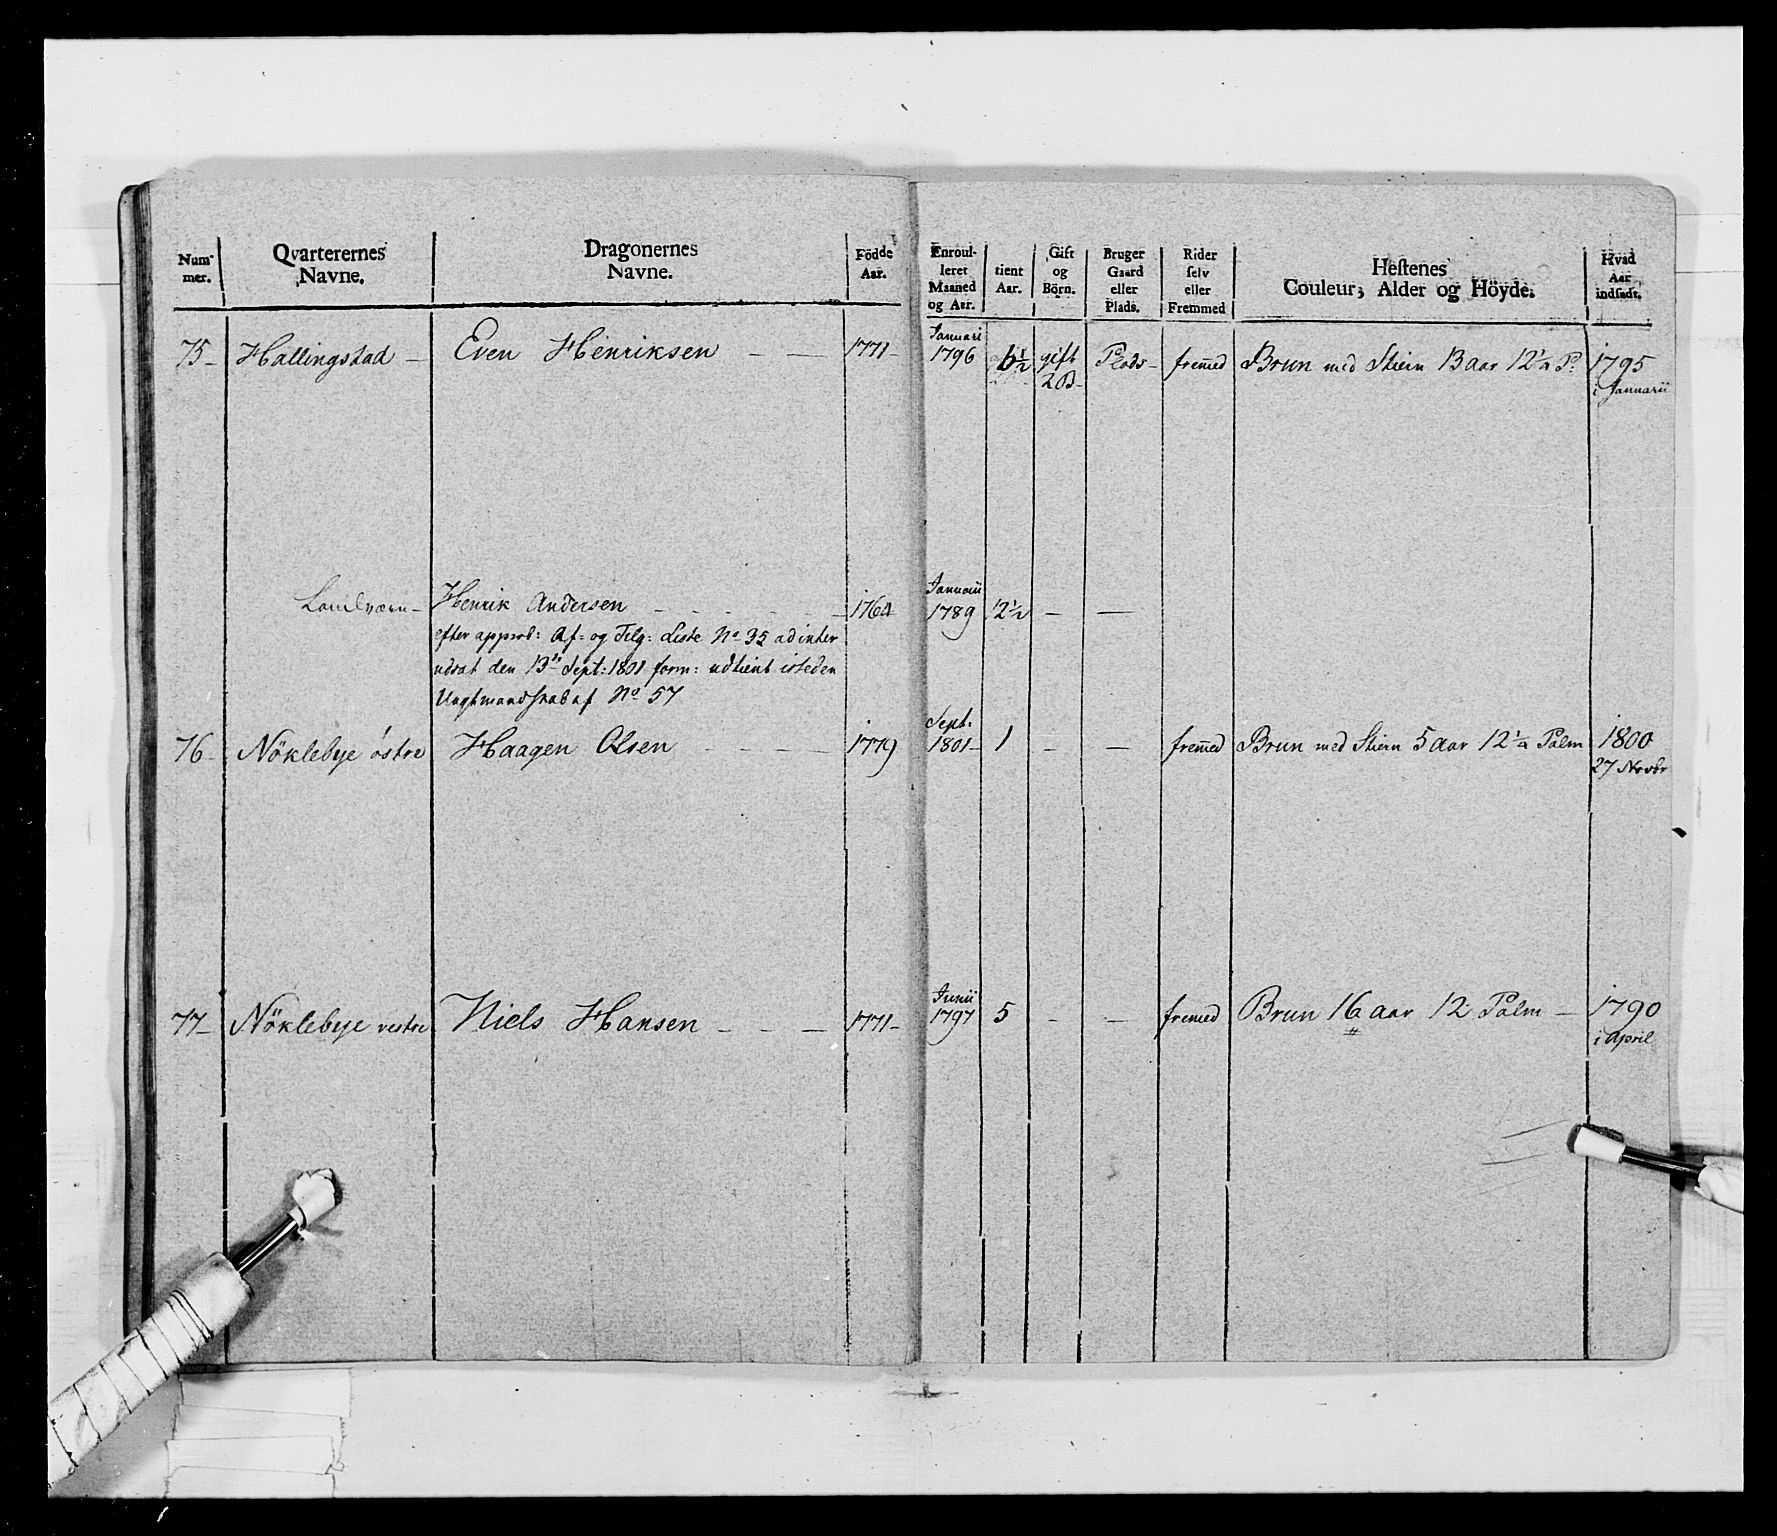 Num-
mer.
Qvarterernes
Navne.
Dragonernes
Navne.
Födde
Aar.
Enroul-
leret
Maaned
og Aar.
tient
Aar.
Gift
og
Börn.
Bruger
Gaard
eller
Plads.
Rider
selv
eller
Fremmed
Hestenes
Couleur, Alder og Höyde.
Hvad
Aar
indsadt.
Januari
75 - Hallingstad - Even Henriksen - - 1771 - 1796 6½ gift Plads - fremed Brun med Stiern 13 aar 12¼ P: 1795
2 B - i Januarii
Januarii
Landværn - Henrik Andersen - - - - 1764 1789 12½ - -
efter approb: Af- og Tilg: Liste No 35 ad inter
udsat den 13de Sept: 1801 form: udtient isteden
Ungtmandskab af No 57
Sept:
76 - Nöklebye östre Haagen Olsen - - - 1779 1801 - 1 - - fremed Brun med Stiern 5 aar 12¼ Palm 1800
27 Novbr
Junii
77 - Nöklebye vestre Niels Hansen - - - 1771 - 1797 5 - - fremed Brun 16 aar 12 Palm - 1790
i April